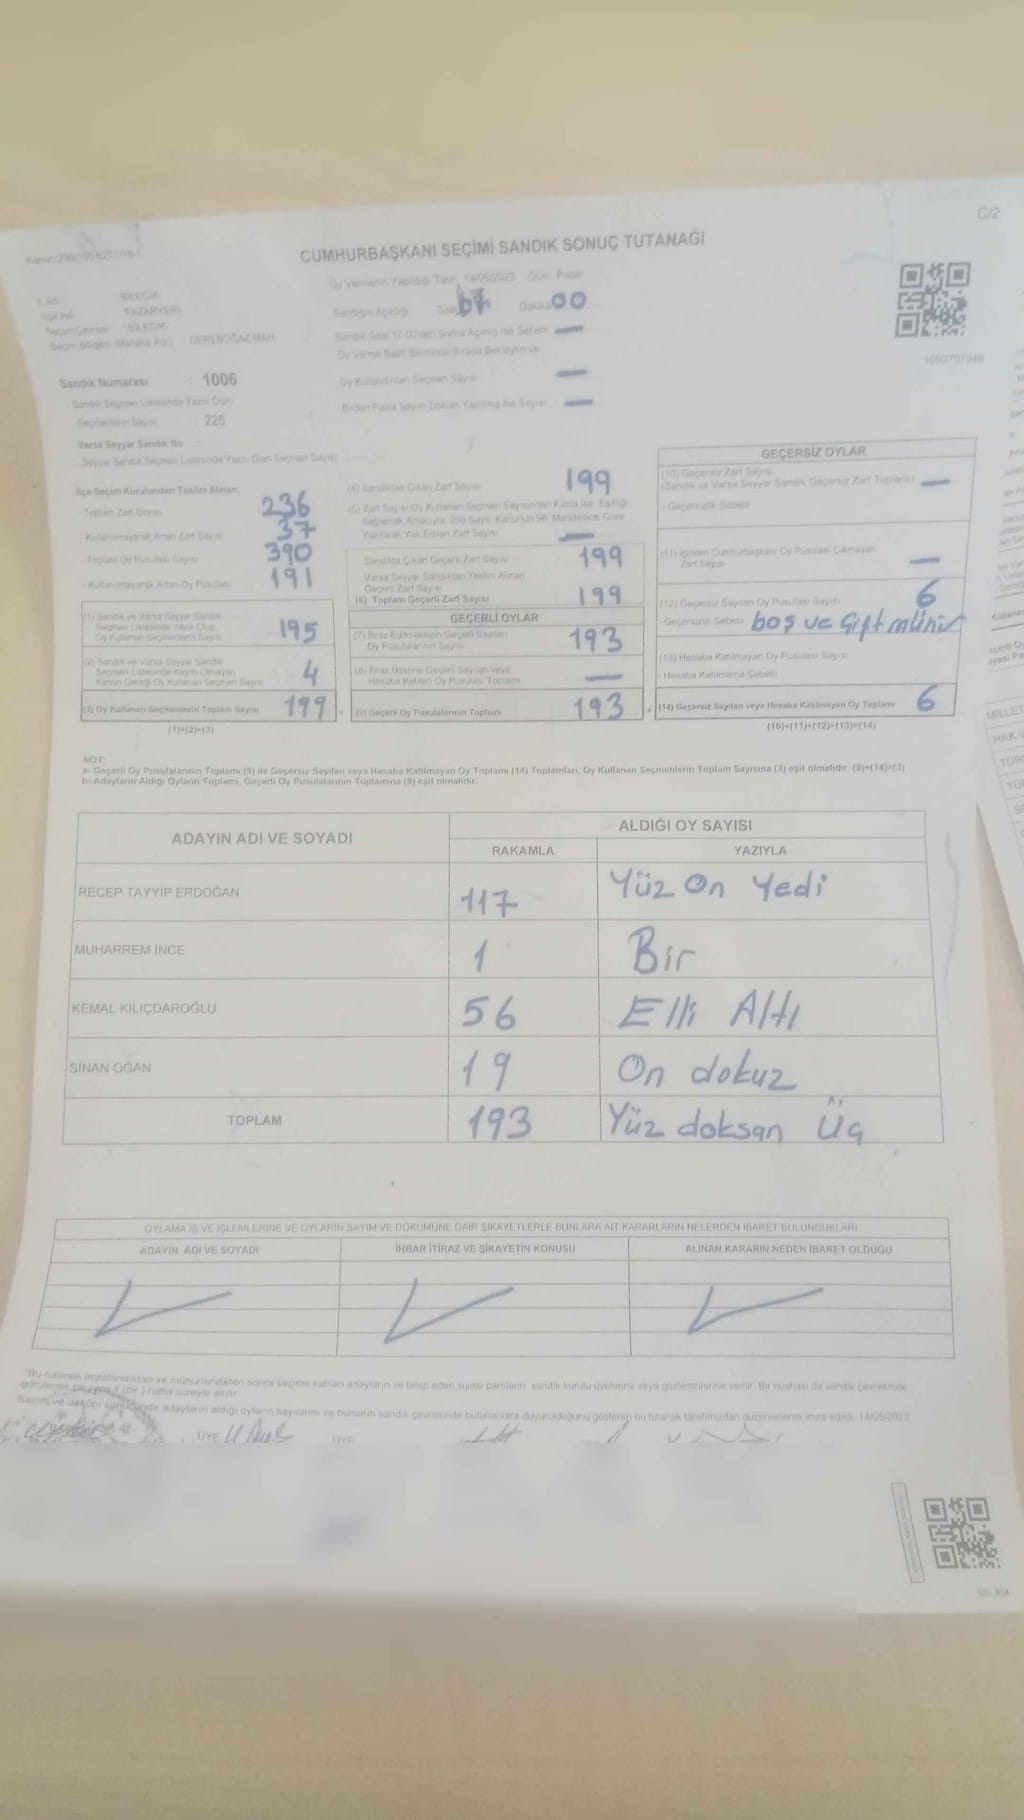 C/2
CUMHURBAŞKANI SEÇİMİ SANDIK SONUÇ TUTANAĞI
Oy Vermenin Yapıldığı Tarih 14/05/2023 Gün Pazar
İl Adı BİLECİK
İlçe Adı PAZARYERİ
Seçim Çevresi : BİLECİK
Seçim Bölgesi (Mahalle Adı) DEREBOĞAZ MAH.
Sandığın Açıldığı Saat Dakika 00
Sandık Saat 17:00'den Sonra Açılmış İse Sebebi —
Oy Verme Saati Bitiminde Sırada Bekleyen ve
Oy Kullandırılan Seçmen Sayısı —
Birden Fazla Sayım Döküm Yapılmış İse Sayısı —
Sandık Numarası : 1006
- Sandık Seçmen Listesinde Yazılı Olan
Seçmenlerin Sayısı : 226
Varsa Seyyar Sandık No :
- Seyyar Sandık Seçmen Listesinde Yazılı Olan Seçmen Sayısı
İlçe Seçim Kurulundan Teslim Alınan;
- Toplam Zarf Sayısı 236
- Kullanılmayarak Artan Zarf Sayısı 37
- Toplam Oy Pusulası Sayısı 390
- Kullanılmayarak Artan Oy Pusulası 191
(1) Sandık ve Varsa Seyyar Sandık
Seçmen Listesinde Yazılı Olup
Oy Kullanan Seçmenlerin Sayısı 195
(2) Sandık ve Varsa Seyyar Sandık
Seçmen Listesinde Kayıtlı Olmayan
Kanun Gereği Oy Kullanan Seçmen Sayısı 4
(3) Oy Kullanan Seçmenlerin Toplam Sayısı 199
(1)+(2)=(3)
(4) Sandıktan Çıkan Zarf Sayısı 199
(5) Zarf Sayısı Oy Kullanan Seçmen Sayısından Fazla İse, Eşitliği
Sağlamak Amacıyla, 298 Sayılı Kanunun 98. Maddesine Göre
Yakılarak Yok Edilen Zarf Sayısı —
Sandıkta Çıkan Geçerli Zarf Sayısı 199
Varsa Seyyar Sandıktan Teslim Alınan
Geçerli Zarf Sayısı
(6) Toplam Geçerli Zarf Sayısı 199
GEÇERLİ OYLAR
(7) İtiraz Edilmeksizin Geçerli Sayılan
Oy Pusulalarının Sayısı 193
(8) İtiraz Üzerine Geçerli Sayılan veya
Hesaba Katılan Oy Pusulası Toplamı —
(9) Geçerli Oy Pusulalarının Toplamı 193
GEÇERSİZ OYLAR
(10) Geçersiz Zarf Sayısı
(Sandık ve Varsa Seyyar Sandık Geçersiz Zarf Toplamı) —
- Geçersizlik Sebebi
(11) İçinden Cumhurbaşkanı Oy Pusulası Çıkmayan
Zarf Sayısı —
(12) Geçersiz Sayılan Oy Pusulası Sayısı 6
- Geçersizlik Sebebi boş ve Çift mühür
(13) Hesaba Katılmayan Oy Pusulası Sayısı
- Hesaba Katılmama Sebebi
(14) Geçersiz Sayılan veya Hesaba Katılmayan Oy Toplamı 6
(10)+(11)+(12)+(13)=(14)
NOT:
a- Geçerli Oy Pusulalarının Toplamı (9) ile Geçersiz Sayılan veya Hesaba Katılmayan Oy Toplamı (14) Toplamları, Oy Kullanan Seçmenlerin Toplam Sayısına (3) eşit olmalıdır. (9)+(14)=(3)
b- Adayların Aldığı Oyların Toplamı, Geçerli Oy Pusulalarının Toplamına (9) eşit olmalıdır.
ADAYIN ADI VE SOYADI
ALDIĞI OY SAYISI
RAKAMLA YAZIYLA
RECEP TAYYİP ERDOĞAN 117 Yüz On Yedi
MUHARREM İNCE 1 Bir
KEMAL KILIÇDAROĞLU 56 Elli Altı
SİNAN OĞAN 19 On dokuz
TOPLAM 193 Yüz doksan Üç
OYLAMA İŞ VE İŞLEMLERİNE VE OYLARIN SAYIM VE DÖKÜMÜNE DAİR ŞİKAYETLERLE BUNLARA AİT KARARLARIN NELERDEN İBARET BULUNDUKLARI
ADAYIN ADI VE SOYADI İHBAR İTİRAZ VE ŞİKAYETİN KONUSU ALINAN KARARIN NEDEN İBARET OLDUĞU
"Bu tutanak imzalandıktan ve mühürlendikten sonra seçime katılan adayların ve talep eden siyasi partilerin, sandık kurulu üyelerine veya gözlemcilerine verilir. Bir nushası da sandık çevresinde
görülecek bir yere 1 (bir ) hafta süreyle asılır.
Sayım ve döküm sonucunda adayların aldığı oyların sayılarını ve bunların sandık çevresinde bulunanlara duyurulduğunu gösteren bu tutanak tarafımızdan düzenlenerek imza edildi. 14/05/2023
ÜYE ÜYE